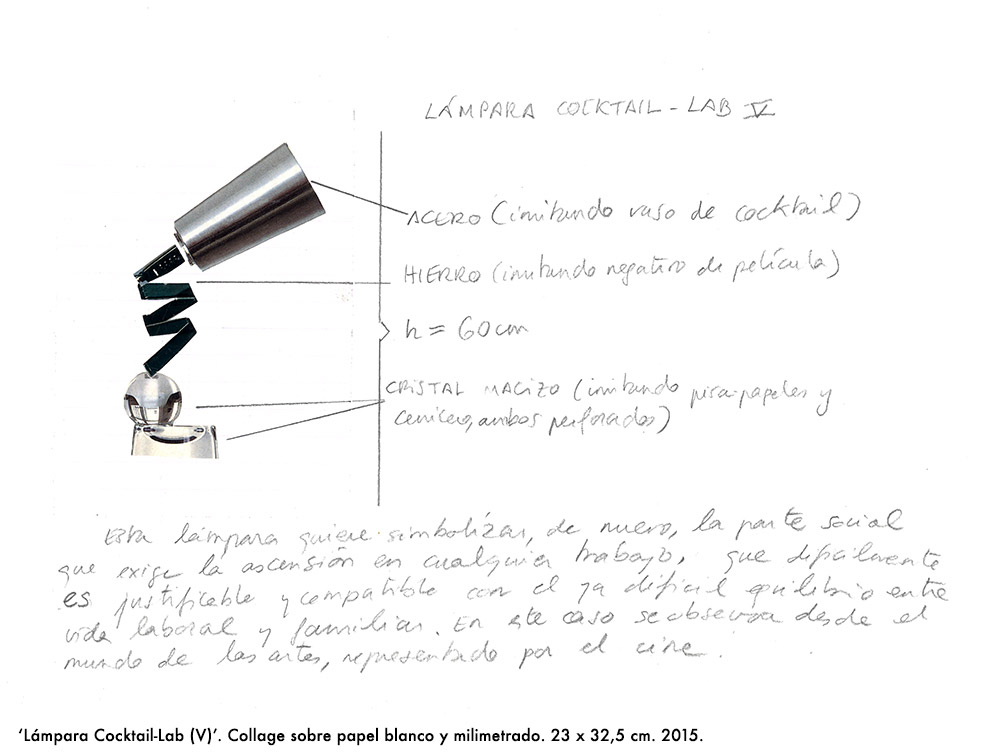 LÁMPARA COCKTAIL - LAB V
ACERO (imitando vaso de cocktail)
HIERRO (imitando negativo de película)
h = 60 cm
CRISTAL MACIZO (imitando pisa-papeles y
cenicero, ambos perforados)
Esta lámpara quiere simbolizar, de nuevo, la parte social
que exige la ascensión en cualquier trabajo, que dificilmente
es justificable y compatible con el ya difícil equilibrio entre
vida laboral y familiar. En este caso se observa desde el
mundo de las artes, representado por el cine.
‘Lámpara Cocktail-Lab (V)’. Collage sobre papel blanco y milimetrado. 23 x 32,5 cm. 2015.